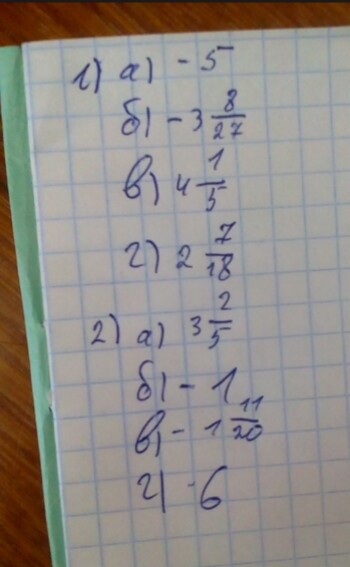 1) а) - 5
б) - 3 8/27
в) 4 1/5
г) 2 7/18
2) а) 3 2/5
б) - 1
в) - 1 11/20
г) - 6